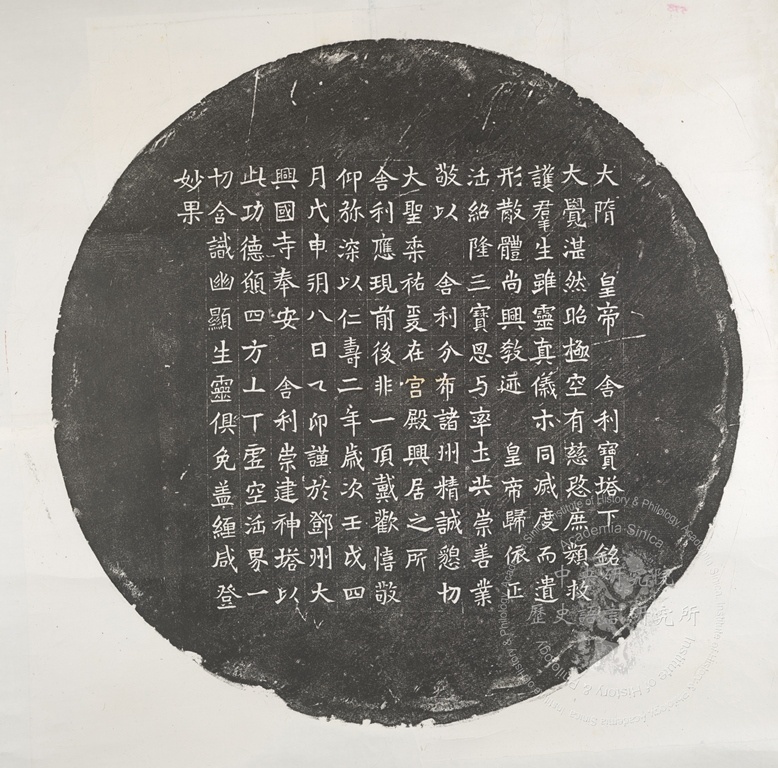 大隋　皇帝　舍利寶塔下銘
大覺湛然昭極空有慈愍庶類救
護羣生雖靈真儀示同滅度而遺
形散體尚興教迹　皇帝歸依正
法紹隆三寶思与率土共崇善業
敬以　舍利分布諸州精誠懇切
大聖垂祐爰在宫殿興居之所
舍利應現前後非一頂戴歡憘敬
仰弥深以仁壽二年歲次壬戌四
月戊申朔八日乙卯謹於鄧州大
興國寺奉安　舍利崇建神塔以
此功德願四方上下虚空法界一
切含識幽顯生靈俱免盖纏咸登
妙果
中央研究院
歷史語言研究所
Academia Sinica
Institute of History & Philology